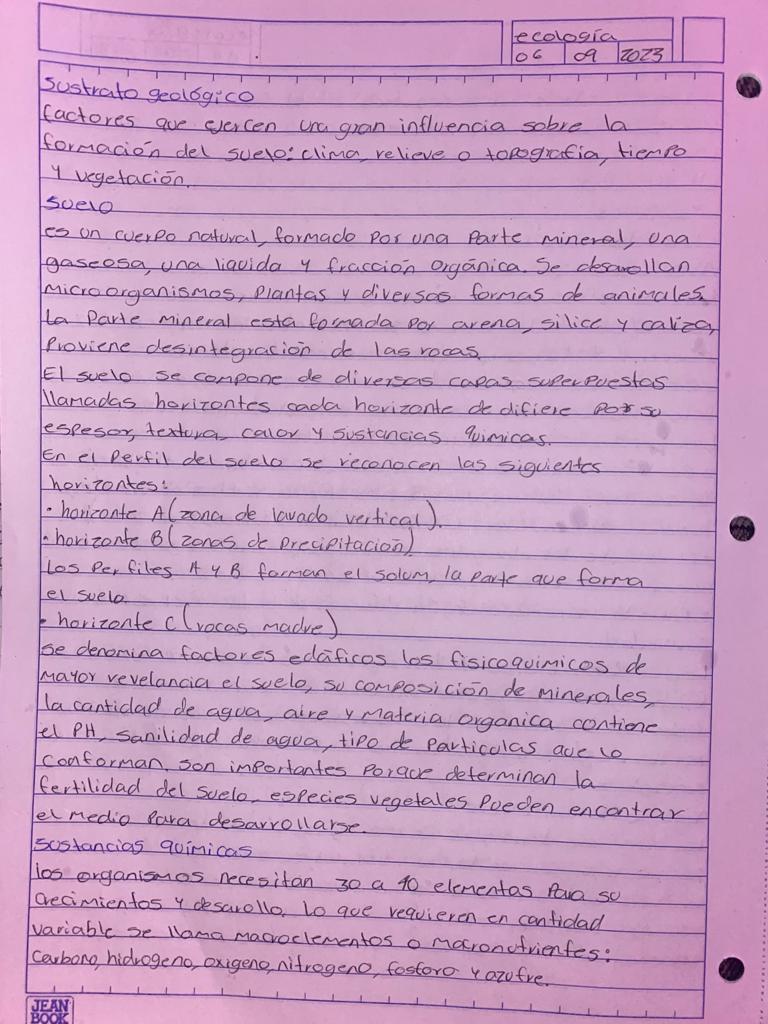 ecología
06 09 2023
Sustrato geológico
factores que ejercen una gran influencia sobre la
formación del suelo: clima, relieve o topografía, tiempo
y vegetación.
suelo
es un cuerpo natural, formado por una parte mineral, una
gaseosa, una liquida y fracción orgánica. Se desarollan
microorganismos, plantas y diversas formas de animales.
la parte mineral esta formada por arena, silice y caliza,
proviene desintegración de las rocas.
El suelo se compone de diversas capas superpuestas
llamadas horizontes cada horizonte de difiere por su
espesor, textura, calor y sustancias químicas.
En el perfil del suelo se reconocen las siguientes
horizontes:
• horizonte A (zona de lavado vertical).
• horizonte B (zonas de precipitación)
Los perfiles A y B forman el solum, la parte que forma
el suelo.
• horizonte C (rocas madre)
se denomina factores edáficos los fisicoquimicos de
mayor revelancia el suelo, su composición de minerales,
la cantidad de agua, aire y materia organica contiene
el PH, sanilidad de agua, tipo de particulas que lo
conforman, son importantes porque determinan la
fertilidad del suelo, especies vegetales pueden encontrar
el medio para desarrollarse.
sustancias químicas
los organismos necesitan 30 a 40 elementos para su
crecimientos y desarollo. lo que requieren en cantidad
variable se llama macroelementos o macronutrientes:
carbono, hidrogeno, oxigeno, nitrogeno, fosforo y azufre.
JEAN
BOOK